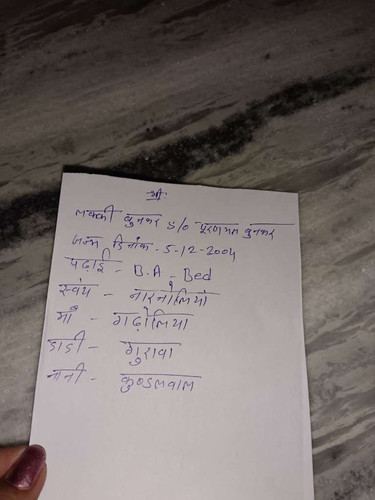 श्रीः
लक्की बुनकर S/O पूरणमल बुनकर
जन्म दिनांक - 5-12-2004
पढ़ाई - B.A - Bed
स्वंय - नारनोलियां
माँ - गढ़ोलिया
डाडी - गुरावा
नानी - कुण्डलवाल